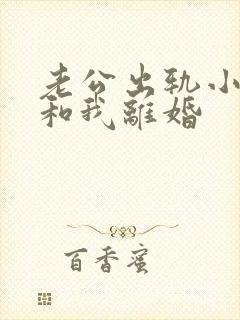 老公出轨小
和我離婚
百香蜜